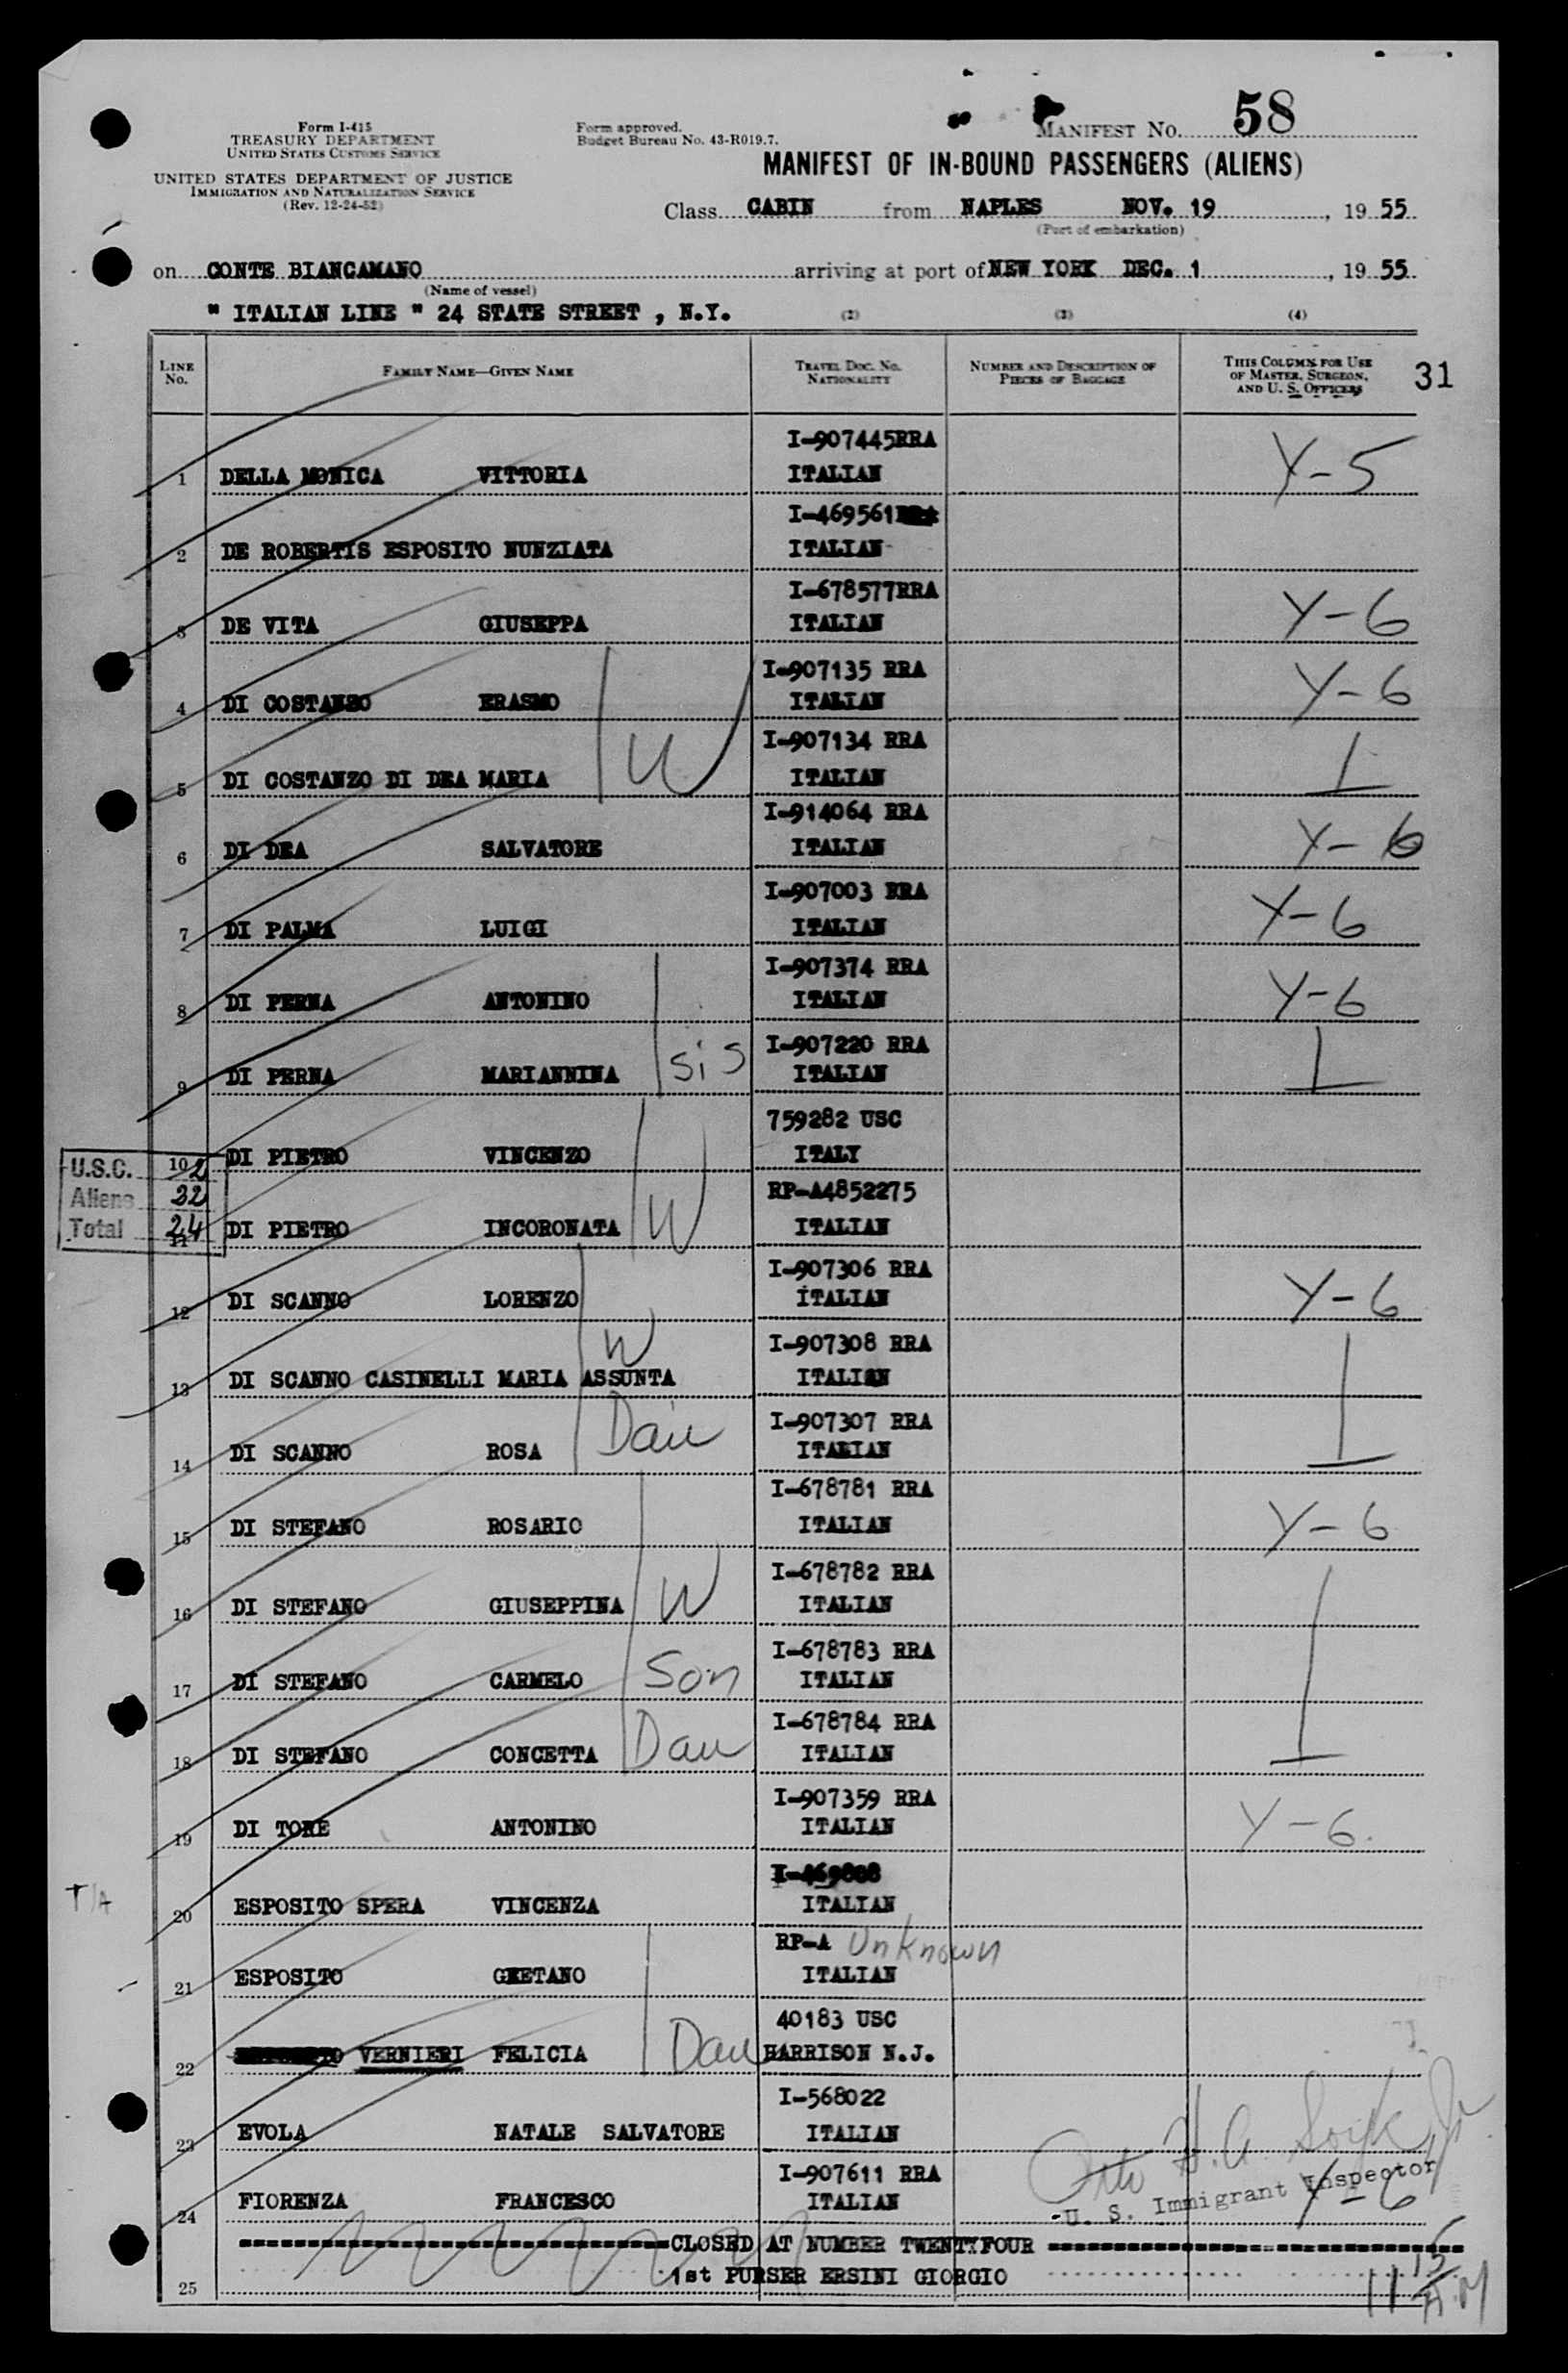 Form I-415
TREASURY DEPARTMENT
UNITED STATES CUSTOMS SERVICE
UNITED STATES DEPARTMENT OF JUSTICE
IMMIGRATION AND NATURALIZATION SERVICE
(Rev. 12-24-52)
Form approved.
Budget Bureau No. 43-R019.7.
MANIFEST NO. 58
MANIFEST OF IN-BOUND PASSENGERS (ALIENS)
Class CABIN from NAPLES NOV. 19, 19 55
(Port of embarkation)
on CONTE BIANCAMANO arriving at port of NEW YORK DEC. 1, 19 55
(Name of vessel)
" ITALIAN LINE " 24 STATE STREET , N.Y. (2) (3) (4)
LINE No. FAMILY NAME—GIVEN NAME TRAVEL DOC. NO. NATIONALITY NUMBER AND DESCRIPTION OF PIECES OF BAGGAGE THIS COLUMN FOR USE OF MASTER, SURGEON, AND U. S. OFFICERS 31
I-907445RRA
1 DELLA MONICA VITTORIA ITALIAN Y-5
I-469561
2 DE ROBERTIS ESPOSITO NUNZIATA ITALIAN
I-678577RRA
3 DE VITA GIUSEPPA ITALIAN Y-6
I-907135 RRA
4 DI COSTANZO ERASMO ITALIAN Y-6
I-907134 RRA
5 DI COSTANZO DI DEA MARIA W ITALIAN
I-914064 RRA
6 DI DEA SALVATORE ITALIAN Y-6
I-907003 RRA
7 DI PALMA LUIGI ITALIAN Y-6
I-907374 RRA
8 DI PERNA ANTONINO ITALIAN Y-6
I-907220 RRA
9 DI PERNA MARIANNINA sis ITALIAN
759282 USC
10 DI PIETRO VINCENZO ITALY
U.S.C. 2
Aliens 22
Total 24
RP-A4852275
11 DI PIETRO INCORONATA W ITALIAN
I-907306 RRA
12 DI SCANNO LORENZO ITALIAN Y-6
I-907308 RRA
13 DI SCANNO CASINELLI MARIA ASSUNTA W ITALIAN
I-907307 RRA
14 DI SCANNO ROSA Dau ITALIAN
I-678781 RRA
15 DI STEFANO ROSARIO ITALIAN Y-6
I-678782 RRA
16 DI STEFANO GIUSEPPINA W ITALIAN
I-678783 RRA
17 DI STEFANO CARMELO Son ITALIAN
I-678784 RRA
18 DI STEFANO CONCETTA Dau ITALIAN
I-907359 RRA
19 DI TORE ANTONINO ITALIAN Y-6.
T/A
20 ESPOSITO SPERA VINCENZA ITALIAN
RP-A Unknown
21 ESPOSITO GAETANO ITALIAN
40183 USC
22 VERNIERI FELICIA Dau HARRISON N.J.
I-568022
23 EVOLA NATALE SALVATORE ITALIAN
I-907611 RRA
24 FIORENZA FRANCESCO ITALIAN Y-6
U. S. Immigrant Inspector
CLOSED AT NUMBER TWENTYFOUR
1st PURSER ERSINI GIORGIO
25
11 15 A.M